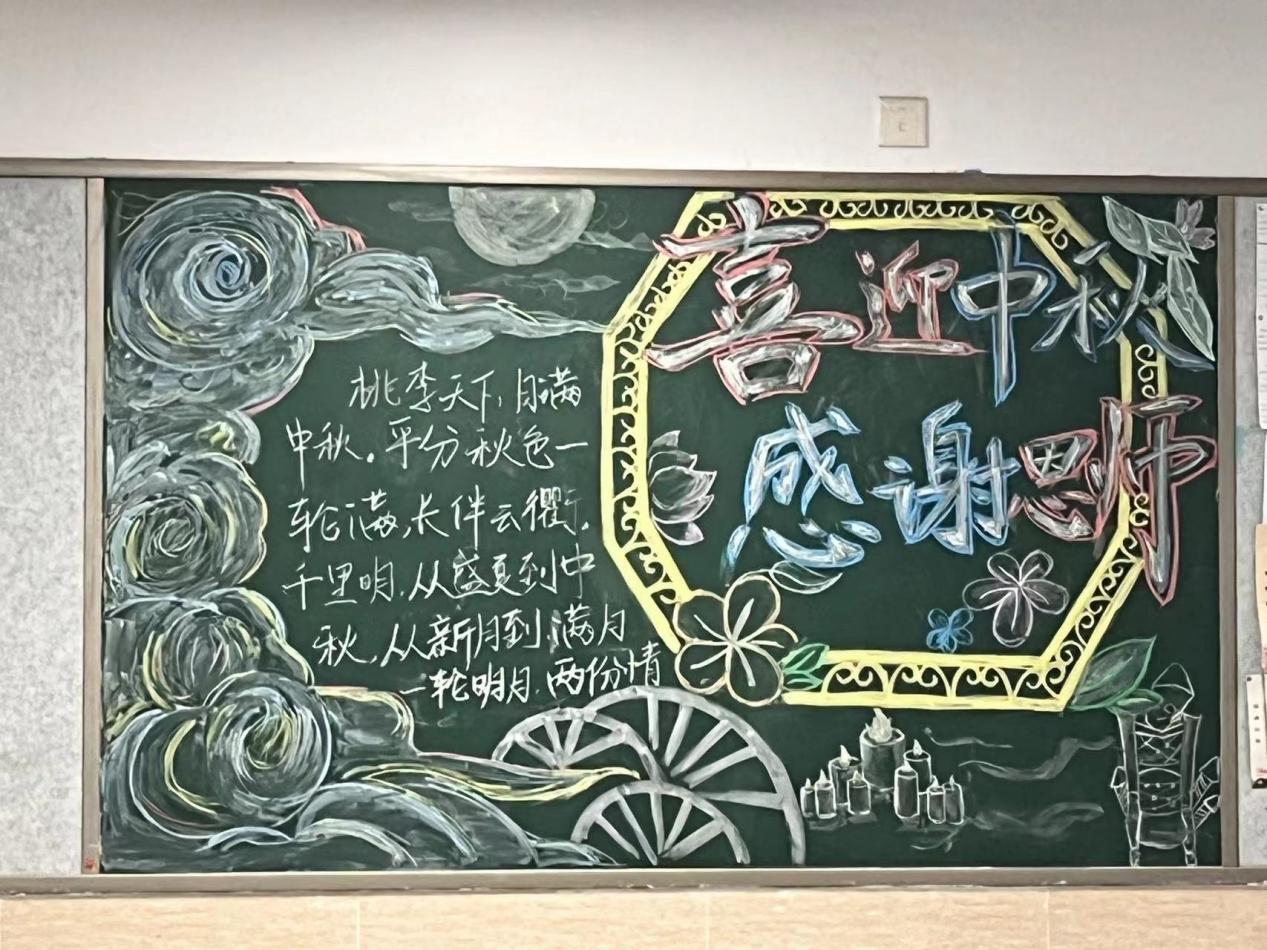 喜迎中秋
感谢恩师
桃李天下,月满
中秋。平分秋色一
轮满,长伴云衢
千里明.从盛夏到中
秋,从新月到满月
一轮明月.两份情